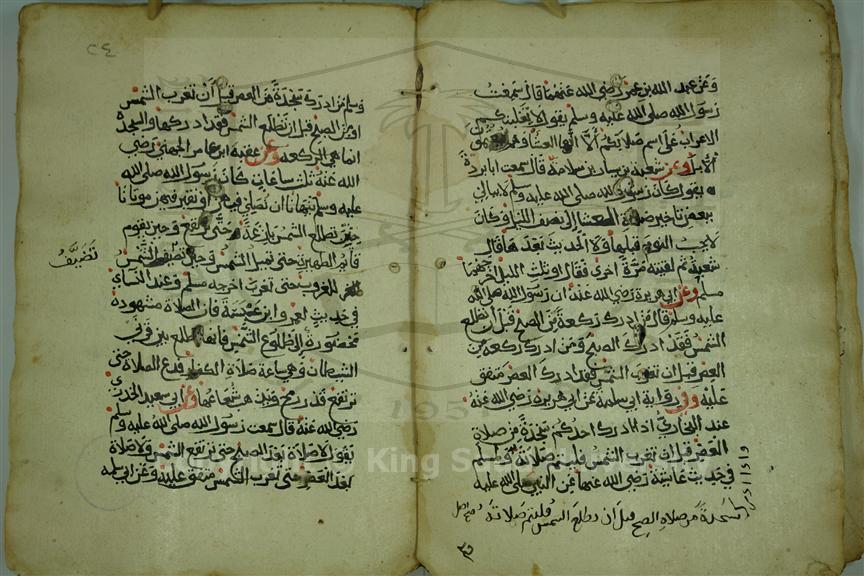 وعن عبد الله بن عمر رضي الله عنهما قال سمعت
رسول الله صلى الله عليه وسلم يقول لا يغلبنكم
الاعراب على اسم صلاتكم ألا انها العشا وهم
الابل وعن شعبة بن سيار بن سلامة قال سمعت ابا برزة
يقول كان رسول الله صلى الله عليه وسلم لا يبالي
ببعض تاخير صلاة العشا الى نصف الليل وكان
لا يحب النوم قبلها ولا الحديث بعدها قال
شعبة ثم لقيته مرة اخرى فقال او ثلث الليل اخرجهما
مسلم وعن ابي هريرة رضي الله عنه ان رسول الله صلى الله
عليه وسلم قال من ادرك ركعة من الصبح قبل أن تطلع
الشمس فقد ادرك الصبح ومن ادرك ركعة من
العصر قبل ان تغرب الشمس فقد ادرك العصر متفق
عليه وفي رواية ابي سلمة عن ابي هريرة رضي الله عنه
عند البخاري اذا ادرك احدكم سجدة من صلاة
العصر قبل ان تغرب الشمس فليتم صلاته ولمسلم
في حديث عائشة رضي الله عنها عن النبي صلى الله عليه
واذا ادرك
سجدة من صلاة الصبح قبل ان تطلع الشمس فليتم صلاته صح اصل
٢٤
وسلم من ادرك سجدة من العصر قبل أن تغرب الشمس
او من الصبح قبل ان تطلع الشمس فقد ادركها والسجدة
انما هي الركعة وعن عقبة ابن عامر الجهني رضي
الله عنه ثلث ساعات كان رسول الله صلى الله
عليه وسلم ينهانا ان نصلي فيهن او نقبر فيهن موتانا
حين تطلع الشمس بازغة حتى ترتفع وحين يقوم
قائم الظهيرة حتى تميل الشمس وحين تضيف الشمس
للغروب حتى تغرب اخرجه مسلم وعند النساي
في حديث لعمرو ابن عبسة فان الصلاة مشهودة
محضورة الى طلوع الشمس فانها تطلع بين قرني
الشيطان وهي ساعة صلاة الكفار فدع الصلاة حتى
ترتفع قدر رمح ويذهب شعاعها وعن ابي سعيد الخدري
رضي الله عنه قال سمعت رسول الله صلى الله عليه وسلم
يقول لا صلاة بعد الصبح حتى ترتفع الشمس ولا صلاة
بعد العصر حتى تغرب الشمس متفق عليه وعن ابي سلمه
تضيف
King Saud University
195